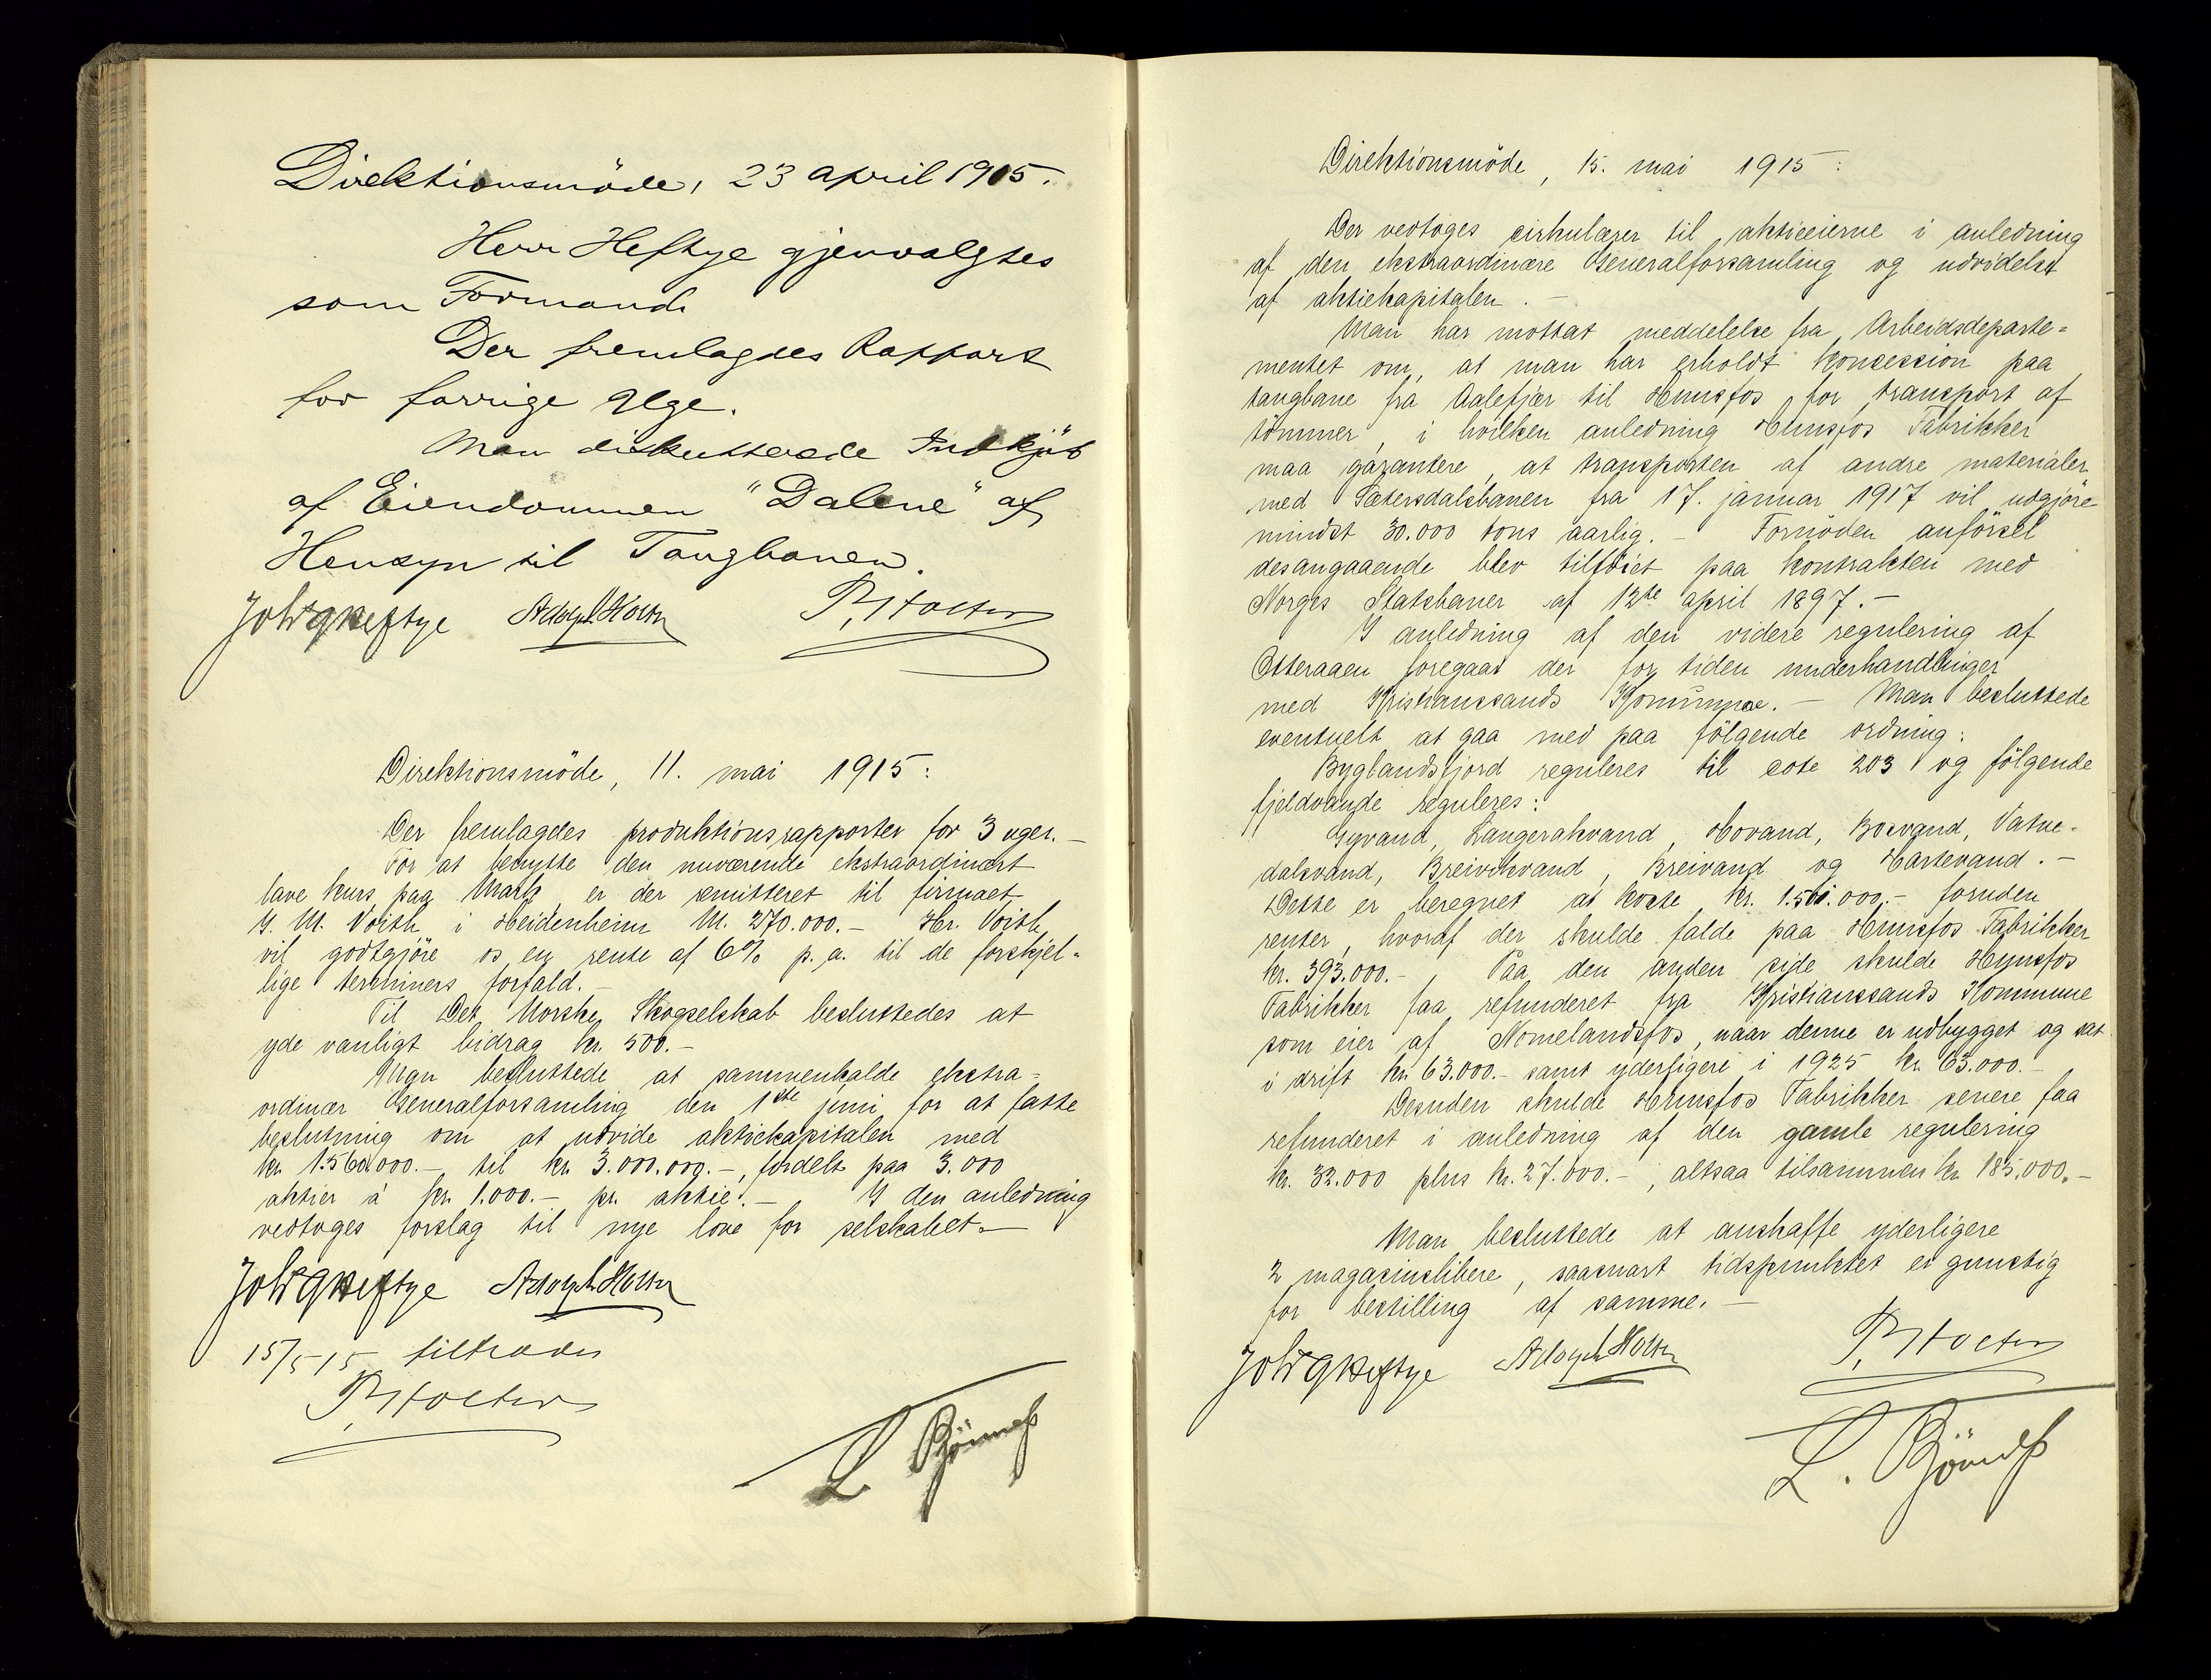 Direktionsmöde, 23 april 1915.
Herr Heftye gjenvalgtes
som Formand
Der fremlagdes Rapport
for forrige Uge.
Man diskutterede Indkjöb
af Eiendommen "Dalene" af
Hensyn til Taugbanen.
Joh. Heftye Adolph Holter P. Holter
Direktionsmöde, 11. mai 1915:
Der fremlagdes produktionsrapporter for 3 uger. -
For at benytte den nuværende ekstraordinært
lave kurs paa Mark er der remitteret til firmaet
J. M. Voith i Heidenheim M. 270.000.- Hr. Voith
vil godtgjöre os en rente af 6% p. a. til de forskjel-
lige terminers forfald. -
Til Det Norske Skogselskab besluttedes at
yde vanligt bidrag kr. 500.-
Man besluttede at sammenkalde ekstra-
ordinær Generalforsamling den 1ste juni for at fatte
beslutning om at udvide aktiekapitalen med
kr. 1.560.000.-, til kr. 3.000.000.-, fordelt paa 3.000
aktier á kr. 1.000.- pr. aktie. - I den anledning
vedtoges forslag til nye love for selskabet. -
Joh. Heftye Adolph Holter
15/5 15 tiltrædes
P. Holter
L.
Direktionsmöde, 15. mai 1915:
Der vedtoges cirkulærer til aktieeierne i anledning
af den ekstraordinære Generalforsamling og udvidelse
af aktiekapitalen. -
Man har mottat meddelelse fra Arbeidsdeparte-
mentet om, at man har erholdt konsession paa
taugbane fra Aalefjær til Hunsfos for transport af
tömmer, i hvilken anledning Hunsfos Fabrikker
maa garantere, at transporten af andre materialer
med Sætersdalsbanen fra 17. januar 1917 vil udgjöre
mindst 30.000 tons aarlig. - Fornöden anförsel
desangaaende blev tilföiet paa kontrakten med
Norges Statsbaner af 12te april 1897. -
I anledning af den videre regulering af
Otteraaen foregaar der for tiden underhandlinger
med Kristianssands Kommune. - Man besluttede
eventuelt at gaa med paa fölgende ordning:
Byglandsfjord reguleres til cote 203 og fölgende
fjeldvande reguleres:
Gyvand, Langerakvand, Hovand, Bosvand, Vatne-
dalsvand, Breivikvand, Breivand og Hartevand. -
Dette er beregnet at koste kr. 1.501.000.- foruden
renter, hvoraf der skulde falde paa Hunsfos Fabrikker
kr. 393.000.- Paa den anden side skulde Hunsfos
Fabrikker faa refunderet fra Kristianssands Kommune
som eier af Nomelandsfos, naar denne er udbygget og sat
i drift kr. 63.000.- samt yderligere i 1925 kr. 63.000.-
Desuden skulde Hunsfos Fabrikker senere faa
refunderet i anledning af den gamle regulering
kr. 32.000 plus kr. 27.000.-, altsaa tilsammen kr. 185.000.-
Man besluttede at anskaffe yderligere
2 magasinslibere, saasnart tidspunktet er gunstig
for bestilling af samme. -
Joh. Heftye Adolph Holter P. Holter
L.